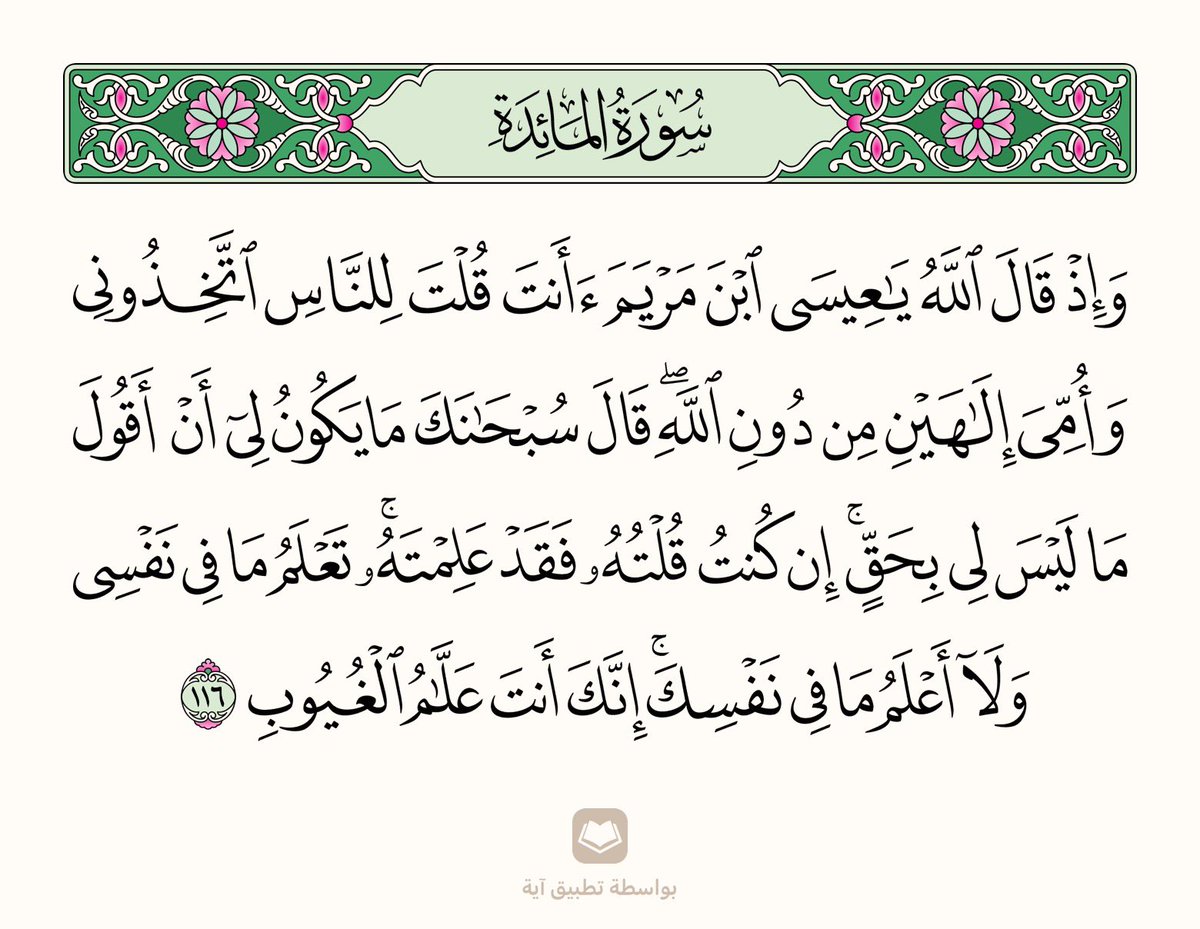 سُورَةُ المَائِدَةِ
وَإِذۡ قَالَ ٱللَّهُ يَٰعِيسَى ٱبۡنَ مَرۡيَمَ ءَأَنتَ قُلۡتَ لِلنَّاسِ ٱتَّخِذُونِي
وَأُمِّيَ إِلَٰهَيۡنِ مِن دُونِ ٱللَّهِۖ قَالَ سُبۡحَٰنَكَ مَا يَكُونُ لِيٓ أَنۡ أَقُولَ
مَا لَيۡسَ لِي بِحَقٍّۚ إِن كُنتُ قُلۡتُهُۥ فَقَدۡ عَلِمۡتَهُۥۚ تَعۡلَمُ مَا فِي نَفۡسِي
وَلَآ أَعۡلَمُ مَا فِي نَفۡسِكَۚ إِنَّكَ أَنتَ عَلَّٰمُ ٱلۡغُيُوبِ ١١٦
بواسطة تطبيق آية